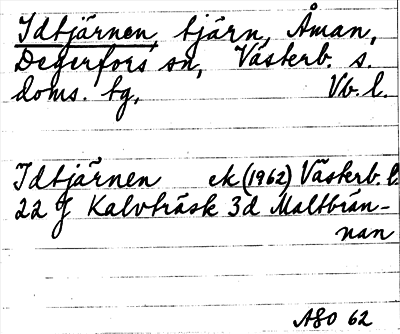 Idtjärnen, tjärn, Åman,
Degerfors sn, Västerb. s.
doms. tg, Vb. l.
Idtjärnen ek (1962) Västerb. l.
22 J Kalvträsk 3d Maltbrän-
nan
ASO 62